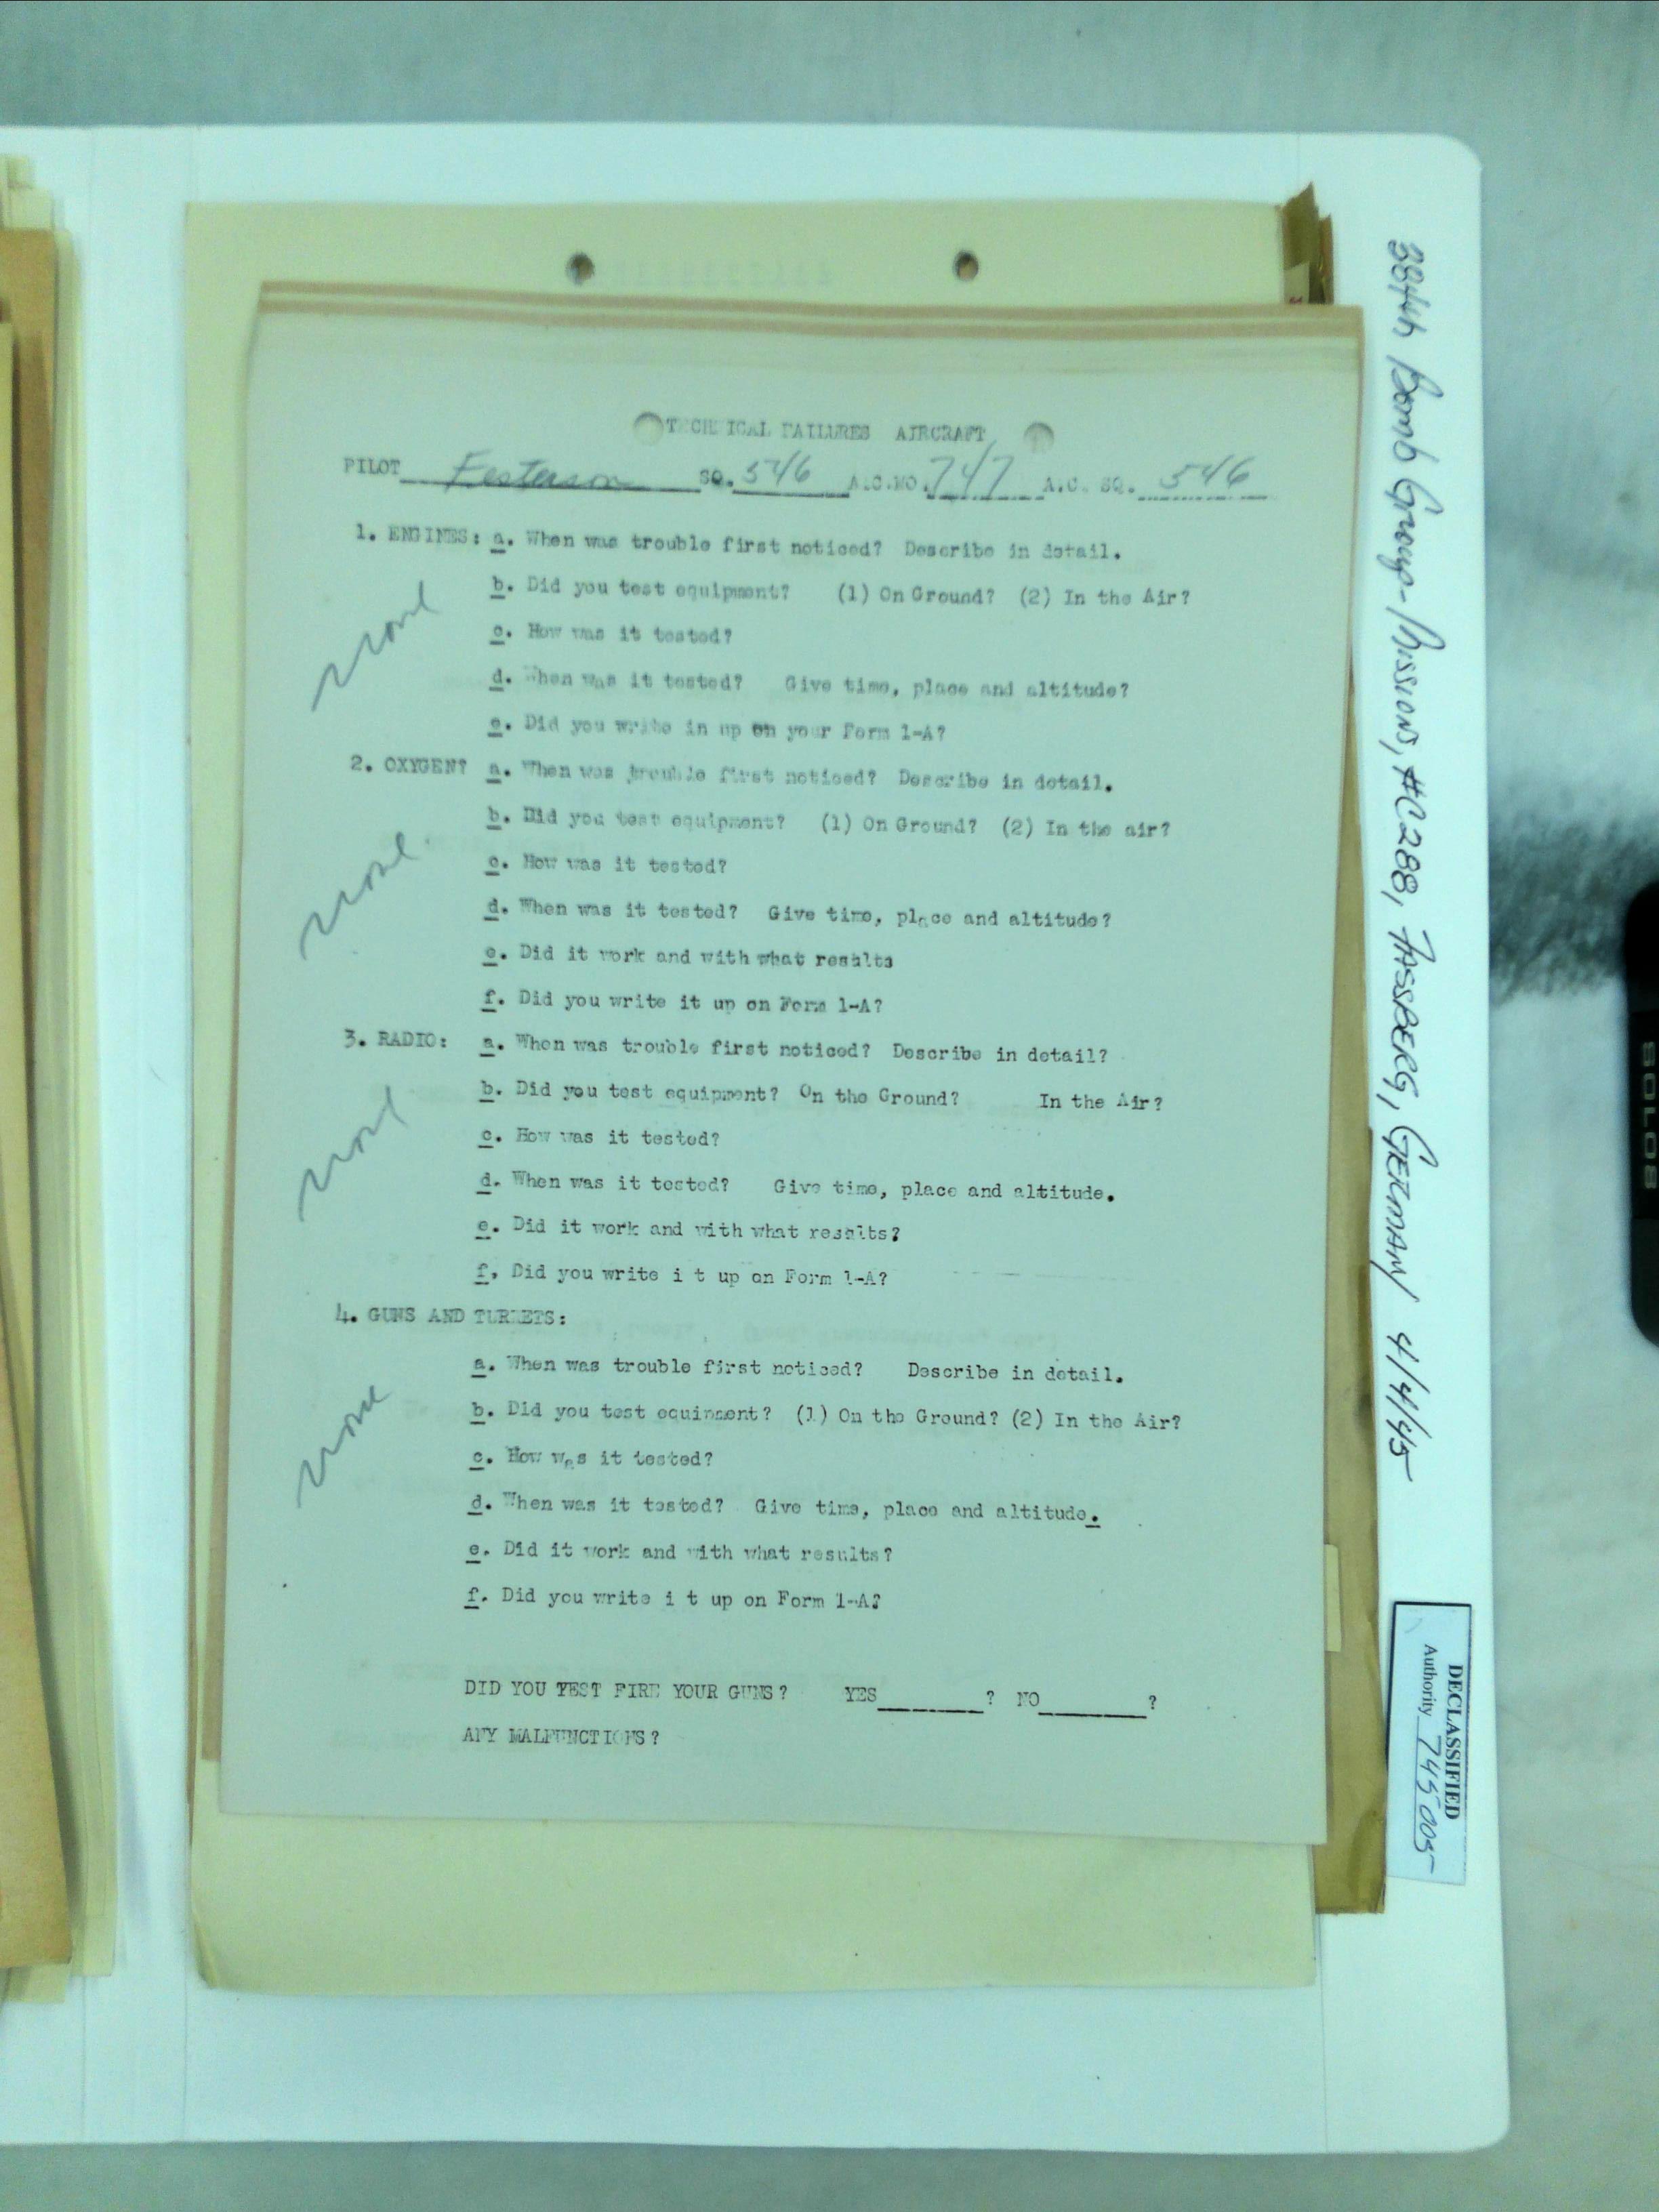 TECHNICAL FAILURES AIRCRAFT
PILOT Festerson SQ. 546 A.C.NO. 747 A.C. SQ. 546
1. ENGINES: a. When was trouble first noticed? Describe in detail.
b. Did you test equipment? (1) On Ground? (2) In the Air?
c. How was it tested?
d. When was it tested? Give time, place and altitude?
e. Did you write in up on your Form 1-A?
none
2. OXYGEN? a. When was trouble first noticed? Describe in detail.
b. Did you test equipment? (1) On Ground? (2) In the air?
c. How was it tested?
d. When was it tested? Give time, place and altitude?
e. Did it work and with what results
f. Did you write it up on Form 1-A?
none
3. RADIO: a. When was trouble first noticed? Describe in detail?
b. Did you test equipment? On the Ground? In the Air?
c. How was it tested?
d. When was it tested? Give time, place and altitude.
e. Did it work and with what results?
f. Did you write i t up on Form 1-A?
none
4. GUNS AND TURRETS:
a. When was trouble first noticed? Describe in detail.
b. Did you test equipment? (1) On the Ground? (2) In the Air?
c. How was it tested?
d. When was it tested? Give time, place and altitude.
e. Did it work and with what results?
f. Did you write i t up on Form 1-A?
none
DID YOU TEST FIRE YOUR GUNS? YES ? NO ?
ANY MALFUNCTIONS?
384th Bomb Group-Missions, #C288, FASSBERG, GERMANY 4/4/45
DECLASSIFIED
Authority 745005
SOLOS